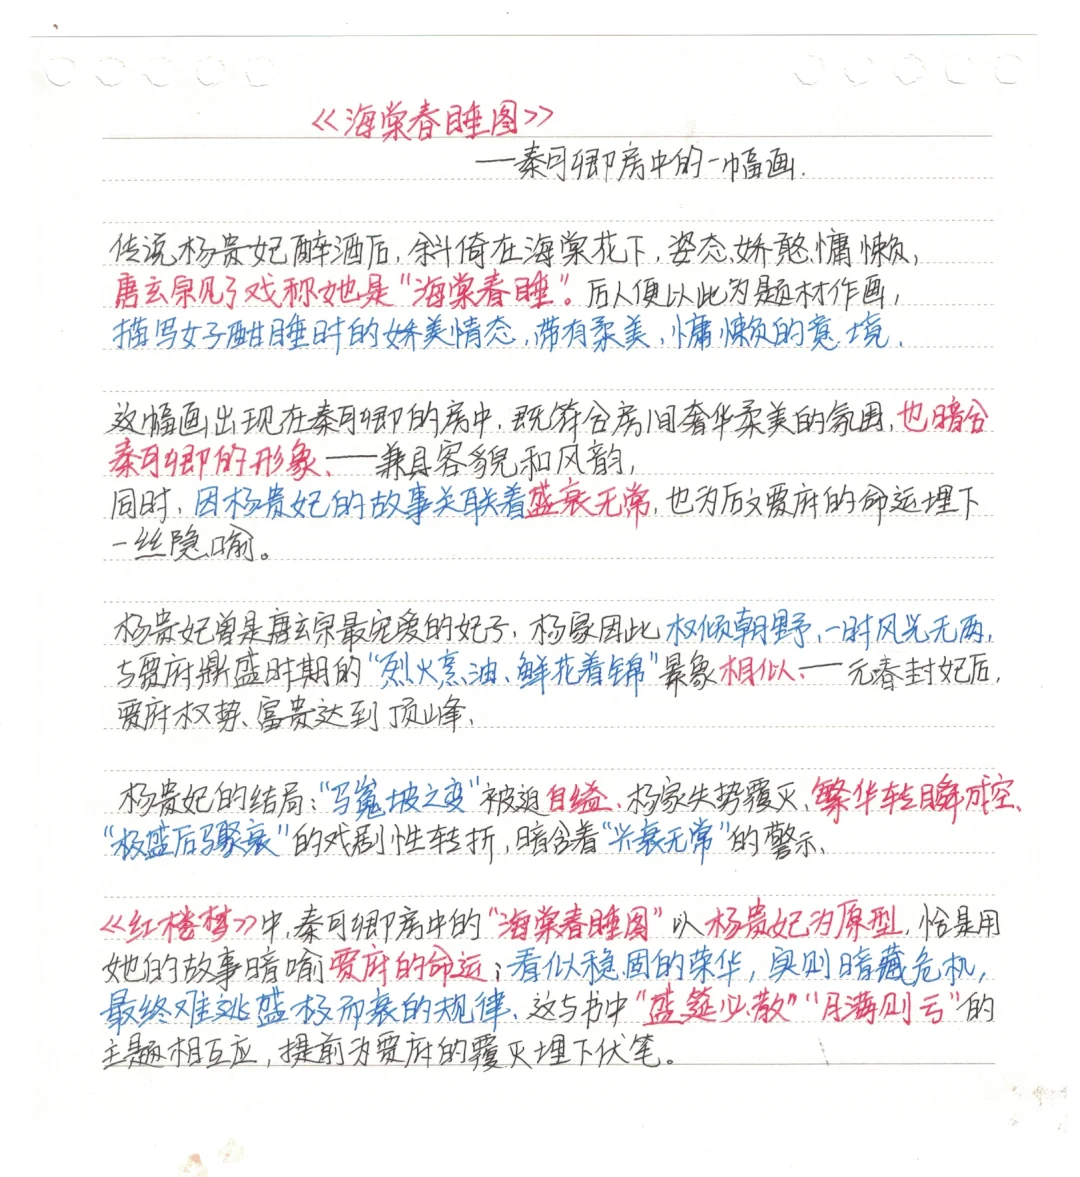 《海棠春睡图》
——秦可卿房中的一幅画.
传说,杨贵妃醉酒后,斜倚在海棠花下,姿态娇憨慵懒,
唐玄宗见了戏称她是“海棠春睡”。后人便以此为题材作画,
描写女子酣睡时的娇美情态,带有柔美,慵懒的意境.
这幅画出现在秦可卿的房中,既符合房间奢华柔美的氛围,也暗合
秦可卿的形象、——兼具容貌和风韵,
同时,因杨贵妃的故事关联着盛衰无常,也为后文贾府的命运埋下
一丝隐喻。
杨贵妃曾是唐玄宗最宠爱的妃子,杨家因此权倾朝野,一时风光无两,
与贾府鼎盛时期的“烈火烹油、鲜花着锦”景象相似、——元春封妃后,
贾府权势、富贵达到顶峰、
杨贵妃的结局:“马嵬坡之变”被迫自缢、杨家失势覆灭、繁华转瞬成空、
“极盛后骤衰”的戏剧性转折,暗含着“兴衰无常”的警示、
《红楼梦》中,秦可卿房中的“海棠春睡图”以杨贵妃为原型,恰是用
她的故事暗喻贾府的命运;看似稳固的荣华,实则暗藏危机,
最终难逃盛极而衰的规律、这与书中“盛筵必散”“月满则亏”的
主题相互应,提前为贾府的覆灭埋下伏笔。